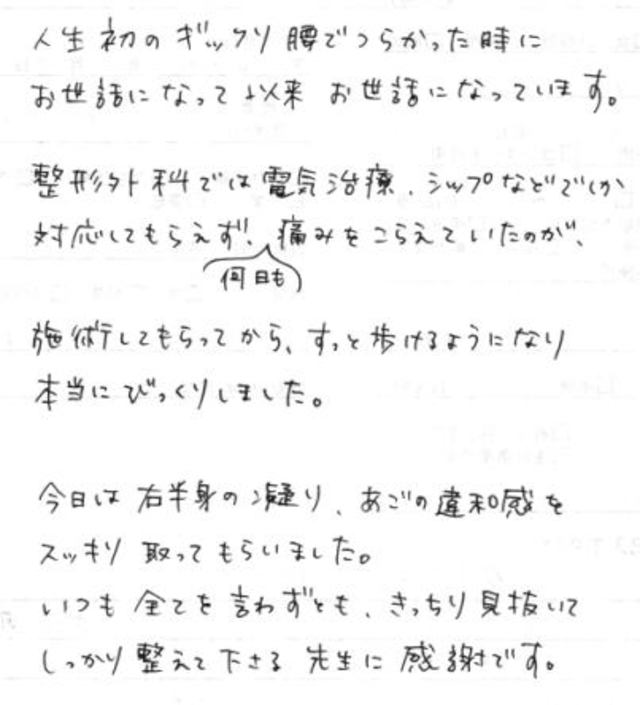 人生初のギックリ腰でつらかった時に
お世話になって以来 お世話になっています。
整形外科では電気治療、シップなどでしか
対応してもらえず、痛みをこらえていたのが、
何日も
施術してもらってから、すっと歩けるようになり
本当にびっくりしました。
今日は右半身の凝り、あごの違和感を
スッキリ取ってもらいました。
いつも全てを言わずとも、きっちり見抜いて
しっかり整えて下さる先生に感謝です。